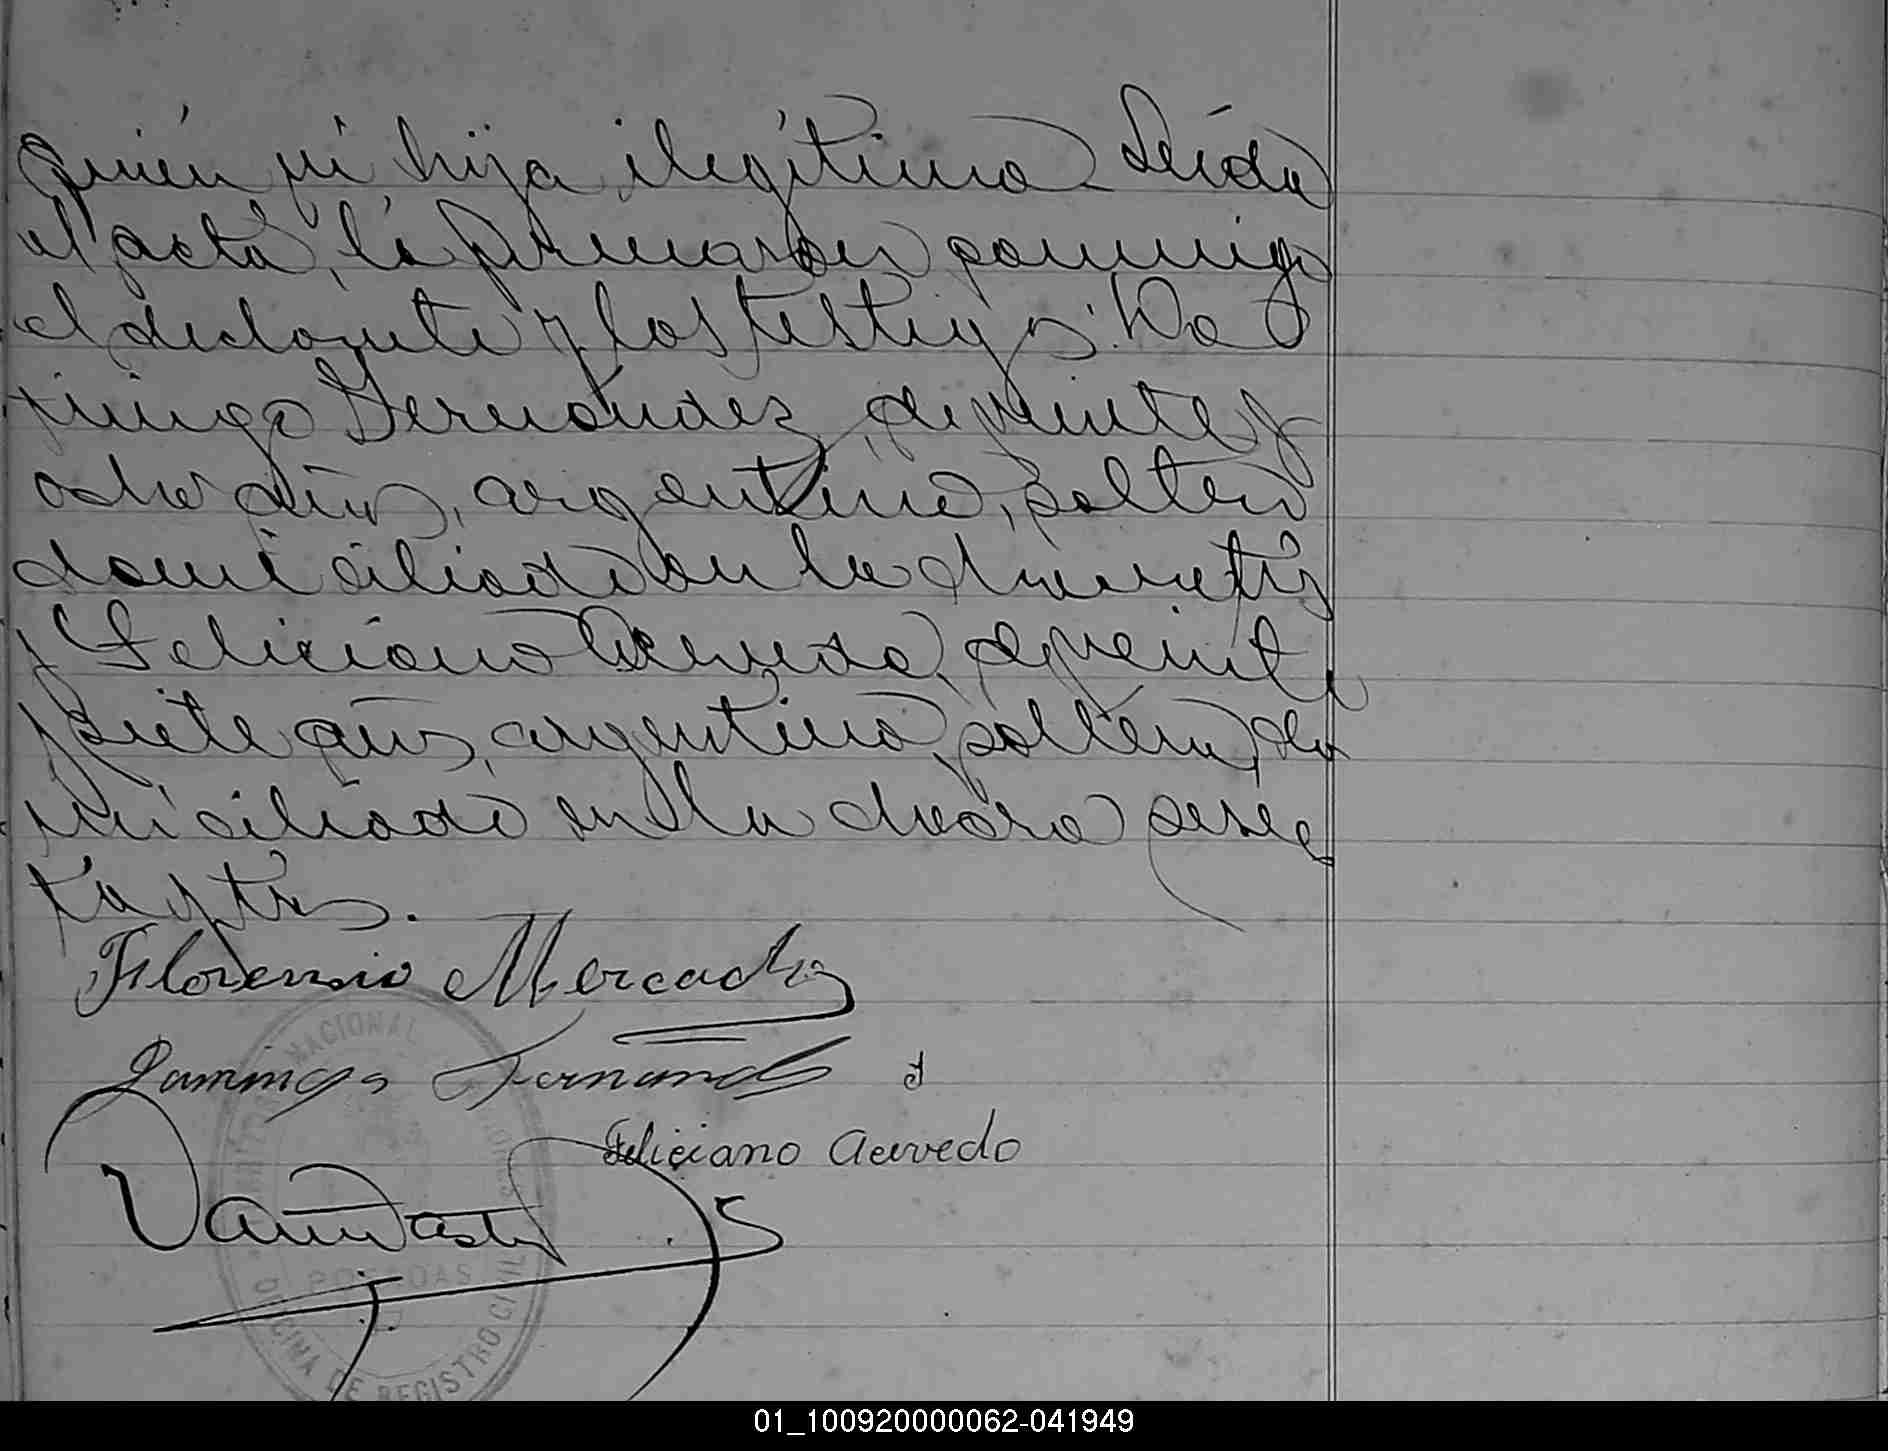 quién es hija ilegítima. Leída
el acta, la firmaron conmigo
el declarante y los testigos: Do
mingo Fernández, de veinte y
ocho años, argentino, soltero
domiciliado en la
y Feliciano Acevedo, de veinte
y siete años, argentino, soltero, do
miciliado en la chacra sesen
ta y tres.
Florencio Mercado
Domingo Fernandez
Feliciano Acevedo
NACIONAL
POSADAS
OFICINA DE REGISTRO CIVIL
01_100920000062-041949